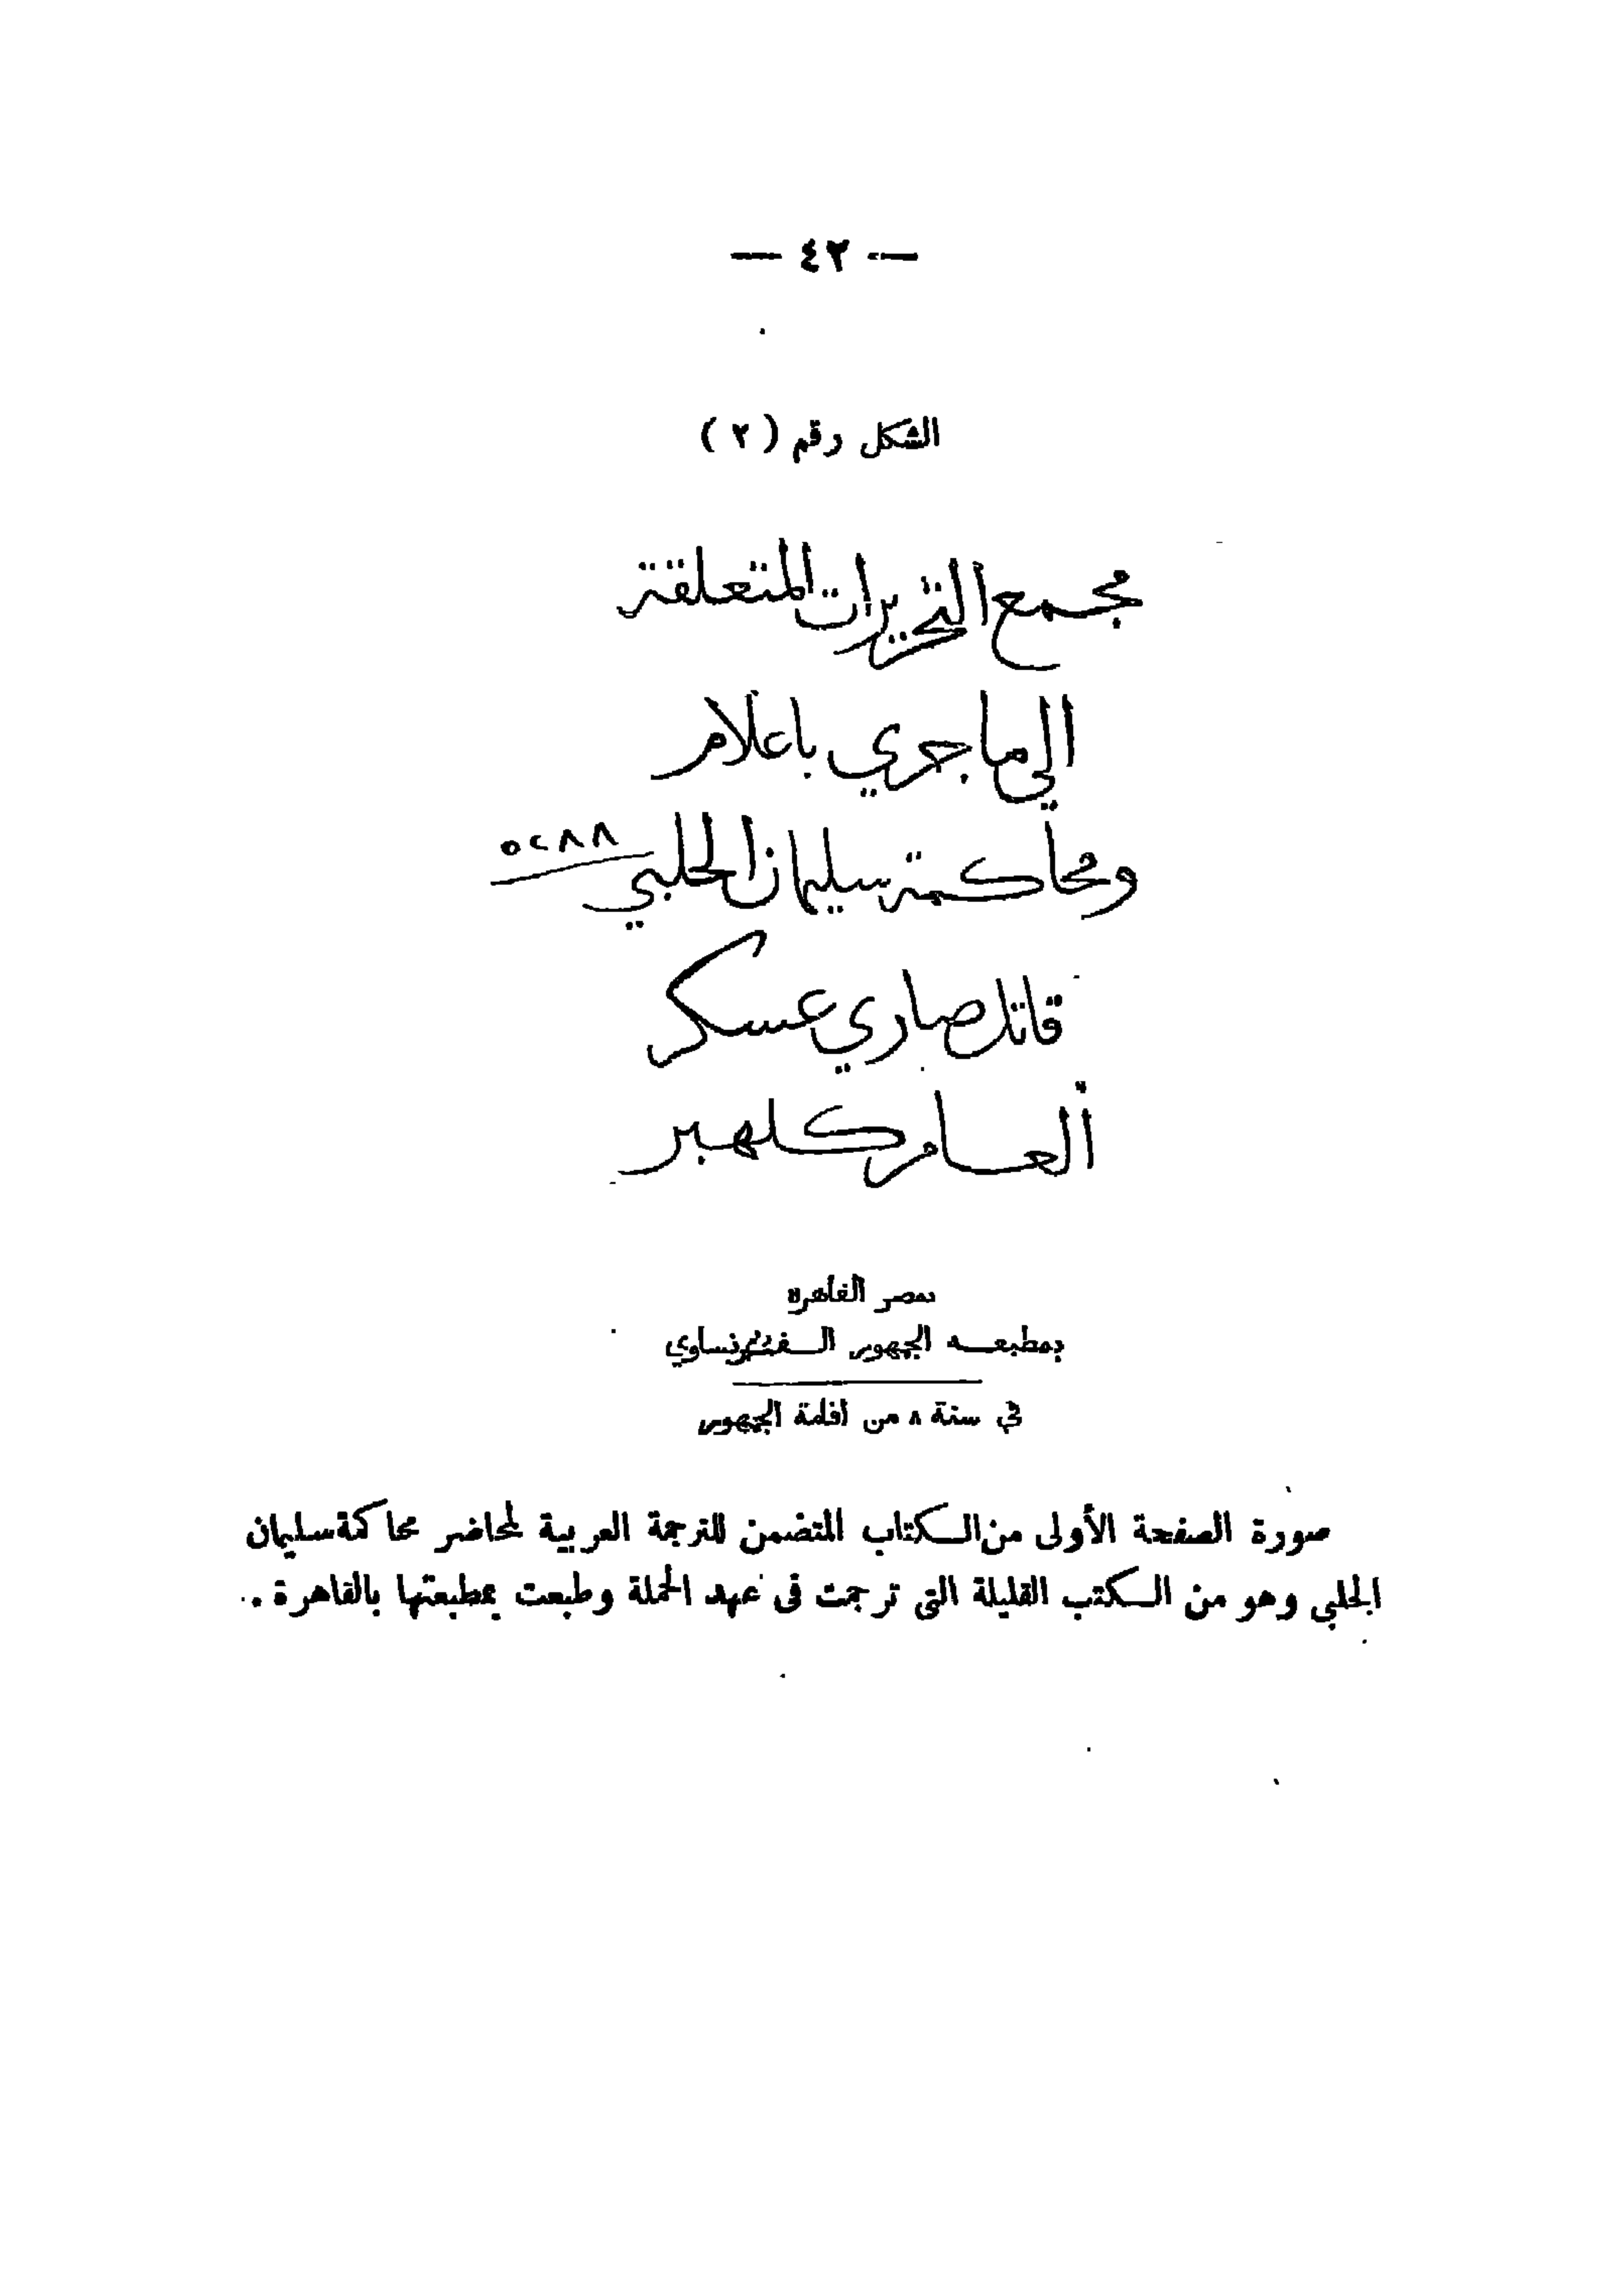 — ٤٢ —
الشكل رقم (٢)
مجمع التحريرات المتعلقة
الي ما جري باعلام
ومحاكمة سليمان الحلبي
٥٢٨٨
قاتل صاري عسكر
العام كلهبر
بمصر القاهرة
بمطبعة الجمهور الفرنساوي
في سنة ٨ من اقامة الجمهور
صورة الصفحة الأولى من الكتاب المتضمن للترجمة العربية لمحاضر محاكمة سليمان
الحلبي وهو من الكتب القليلة التى ترجمت فى عهد الحملة وطبعت بمطبعتها بالقاهرة .